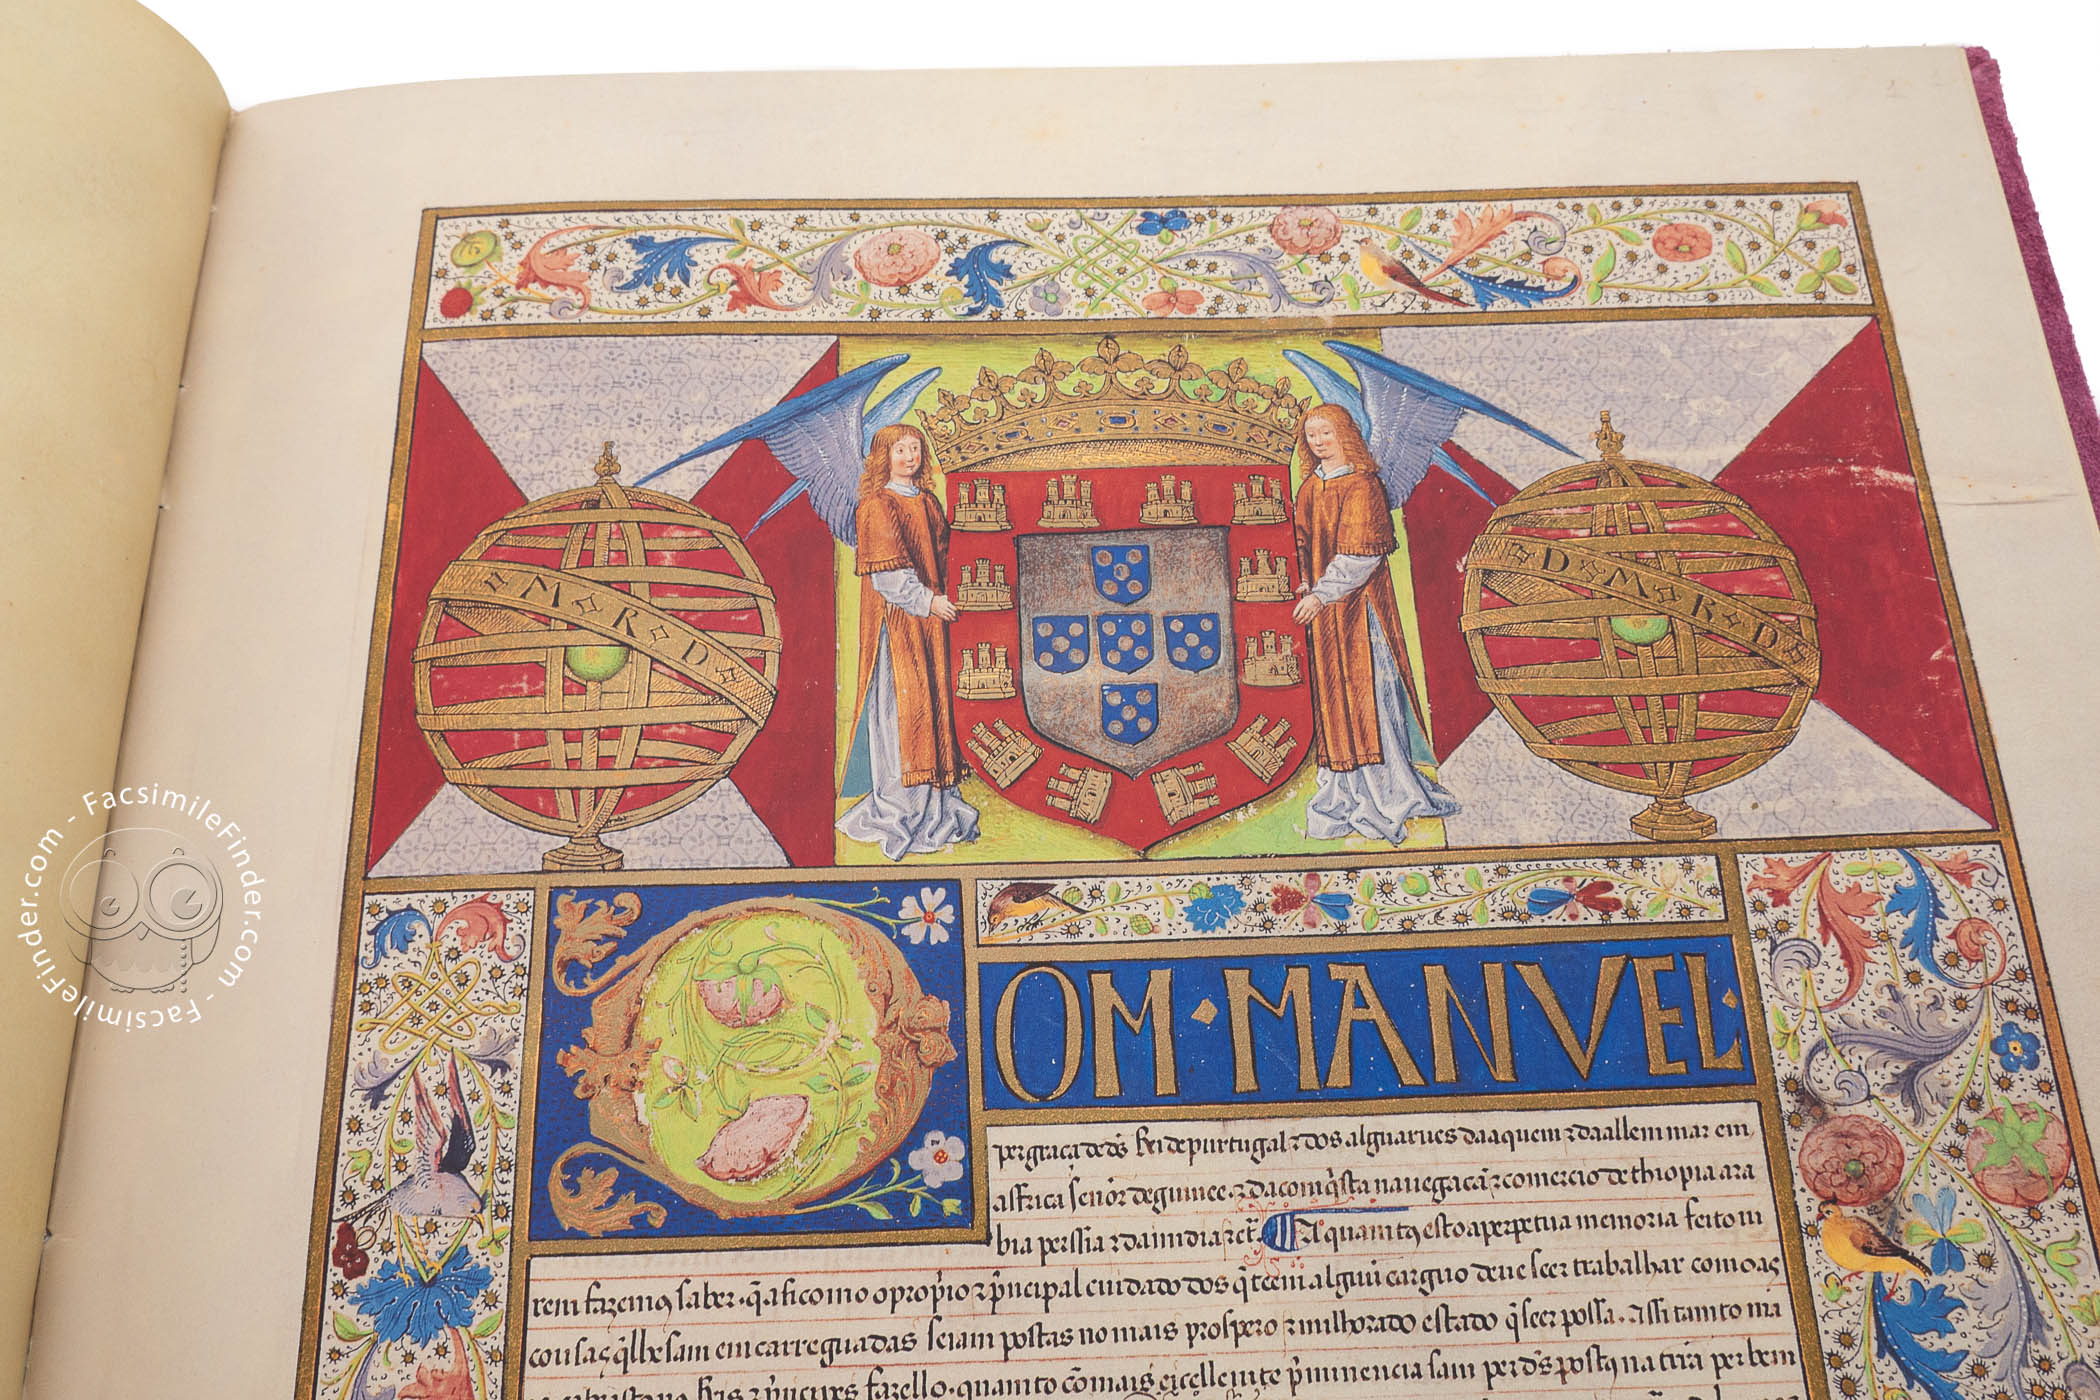 M R D
D M R D S
D
OM · MANVEL ·
per graça de ds̃ Rei de purtugal ⁊ dos alguarues daaquem ⁊ daallem mar em
affrica señor de guinee ⁊ da comq̃sta nauegacã ⁊ comercio dethiopia ara
bia perssia ⁊ da india ⁊ct̃. A quamtꝯ esto aperpetua memoria feito vi
rem fazemꝯ saber. q̃ assi como o prop̃io ⁊ p̃ncipal cuidado dos q̃ teem alguũ carguo deue seer trabalhar como as
cousas q̃ lhe sam emcarreguadas seiam postas no mais prospero ⁊ milhorado estado q̃ seer possa. Assi tamto ma
fazello. quamto cõ mais excellente p̃minencia sam per ds̃ postꝯ na tirã per bem
FacsimileFinder.com - FacsimileFinder.com -